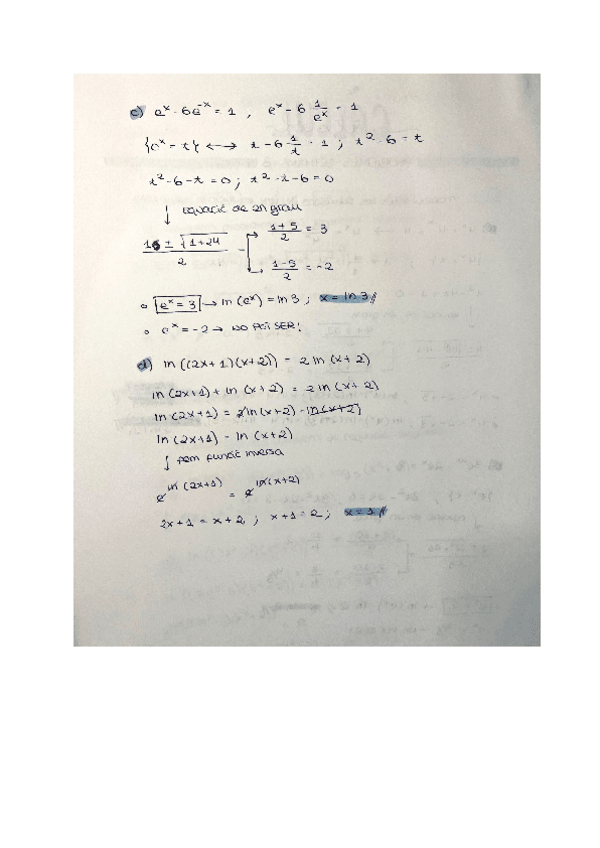 c) eˣ - 6e⁻ˣ = 1 , eˣ - 6 1/eˣ = 1
{eˣ = t} ←→ t - 6 · 1/t = 1 ; t² - 6 = t
t² - 6 - t = 0 ; t² - t - 6 = 0
↓ equació de 2n grau
1 ± √1+24 / 2 → 1+5/2 = 3
→ 1-5/2 = -2
o eˣ = 3 → ln(eˣ) = ln 3 ; x = ln 3
o eˣ = -2 → NO POT SER!
d) ln((2x+1)(x+2)) = 2 ln(x+2)
ln(2x+1) + ln(x+2) = 2 ln(x+2)
ln(2x+1) = 2 ln(x+2) - ln(x+2)
ln(2x+1) = ln(x+2)
↓ fem funció inversa
e^ln(2x+1) = e^ln(x+2)
2x+1 = x+2 ; x+1 = 2 ; x = 1